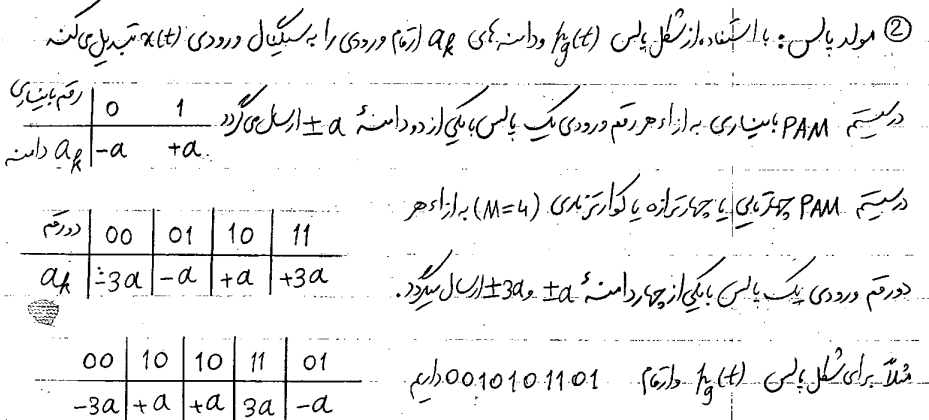 ② مولد پالس: با استفاده از شکل پالس pg(t) و دامنه های ak ارقام ورودی را به سیگنال ورودی x(t) تبدیل می کند
در سیستم PAM باینری به ازاء هر رقم ورودی یک پالس با یکی از دو دامنهٔ ±a ارسال می گردد
رقم باینری | 0 | 1
دامنه ak | -a | +a
در سیستم PAM چهارتایی یا چهارترازه یا کوارترنری (M=4) به ازاء هر
دورقم ورودی یک پالس با یکی از چهار دامنهٔ ±a و ±3a ارسال میگردد.
دورقم | 00 | 01 | 10 | 11
ak | -3a | -a | +a | +3a
مثلاً برای شکل پالس pg(t) و ارقام 0010101101 داریم
00 | 10 | 10 | 11 | 01
-3a | +a | +a | 3a | -a